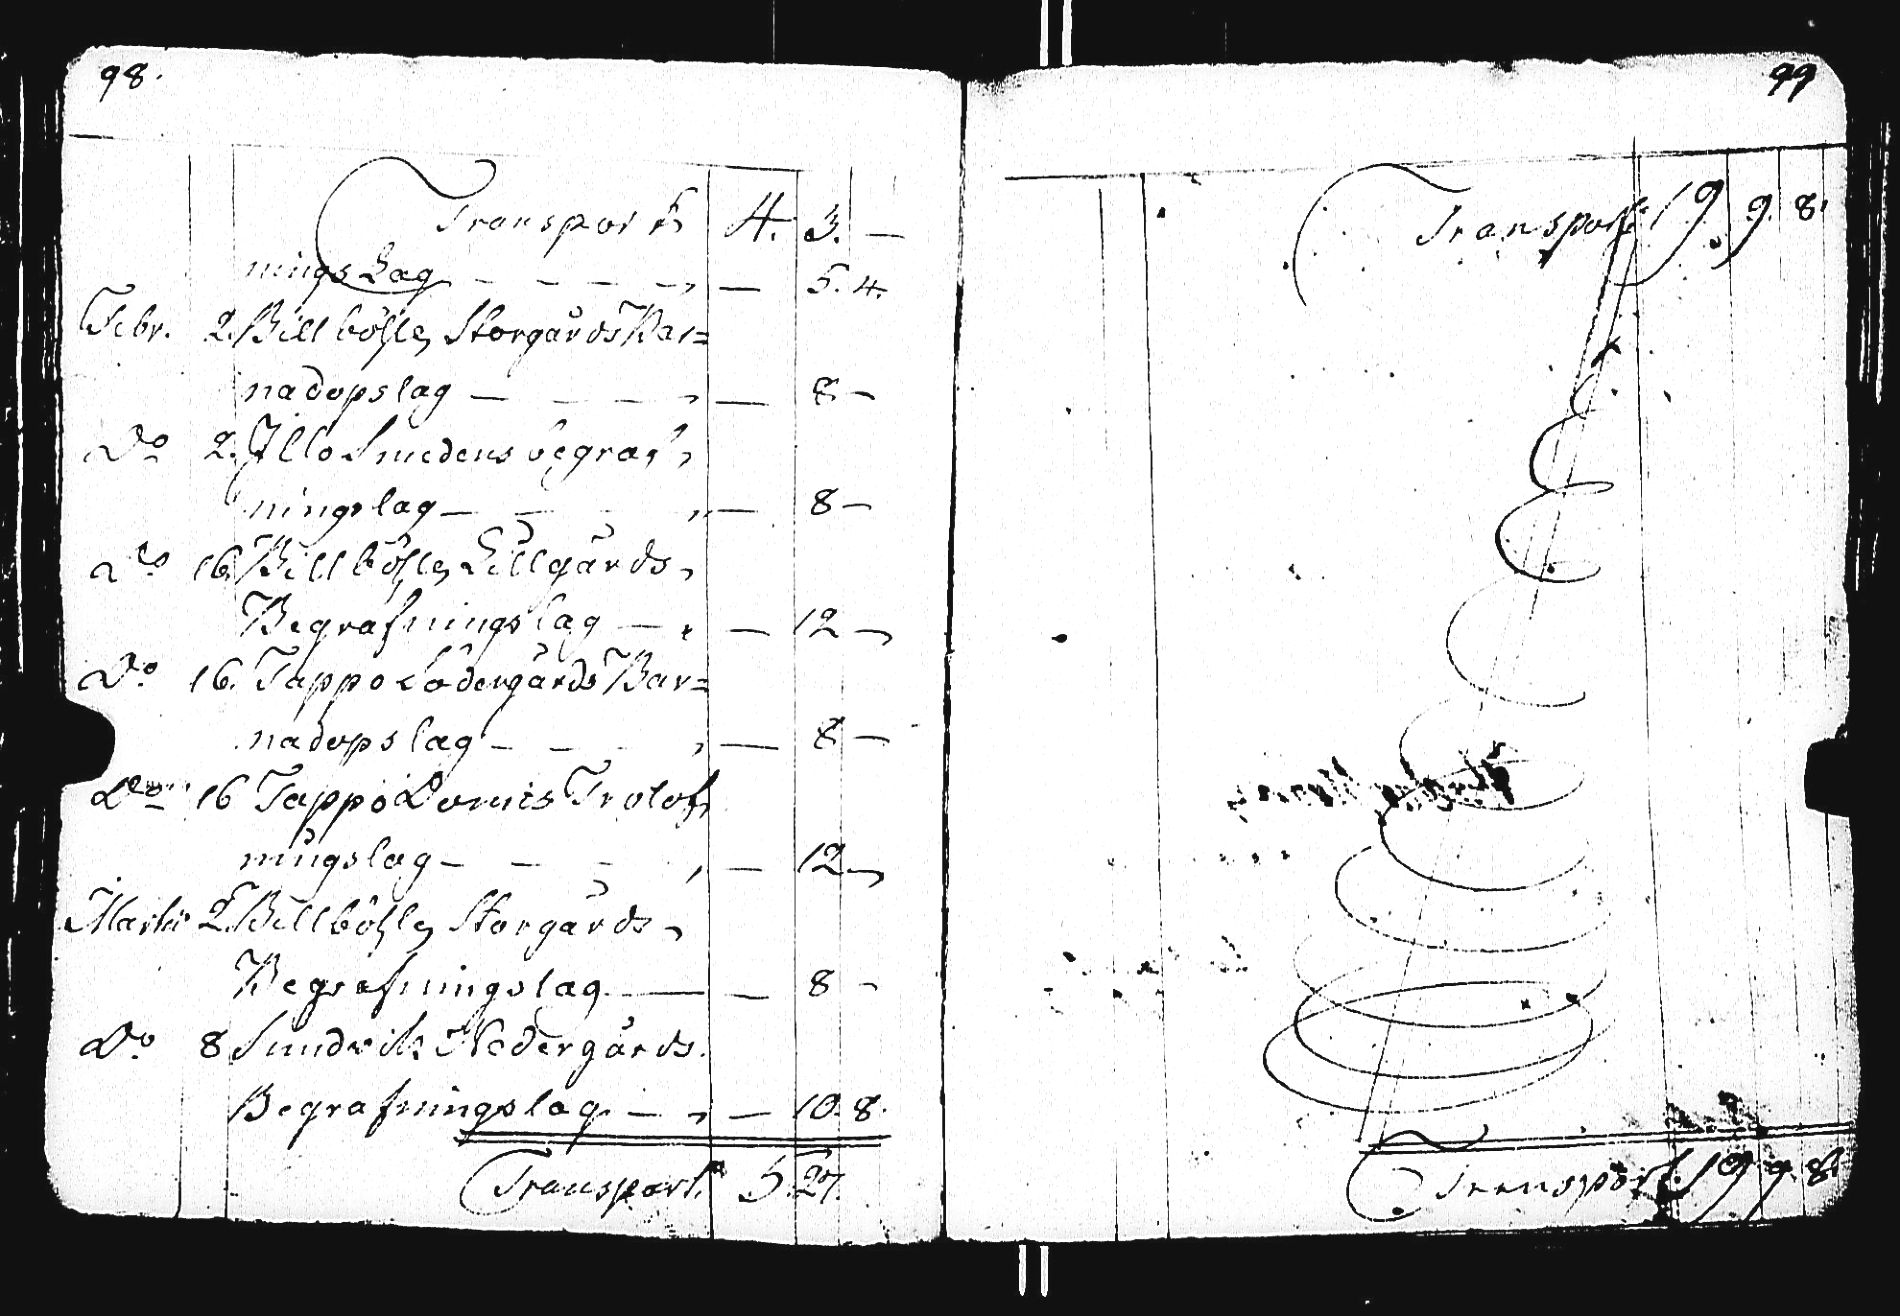 98.
Transport 4. 3. —
ningsLag — — — — — 5. 4.
Febr. 2. Billböhle StorgårdsBar=
nadopslag — — — — 8 —
Do 2. Illo Smedens begraf,
ningslag — — — — 8 —
Do 16. Billböhle Lillgårds,
Begrafningslag — — 12 —
Do 16. Tappo Södergårds Bar=
nadopslag — — — 8 —
Do 16 Tappo Domis Trolof,
ningslag — — — — 12 —
Martii 2. Billböhle Storgårds,
Begrafningslag — — 8 —
Do 8 Sundvik Nedergårds
Begrafningslag — — 10. 8.
Transport. 5. 27.
99
Transport 19. 9. 8.
Transport. 19 9. 8.